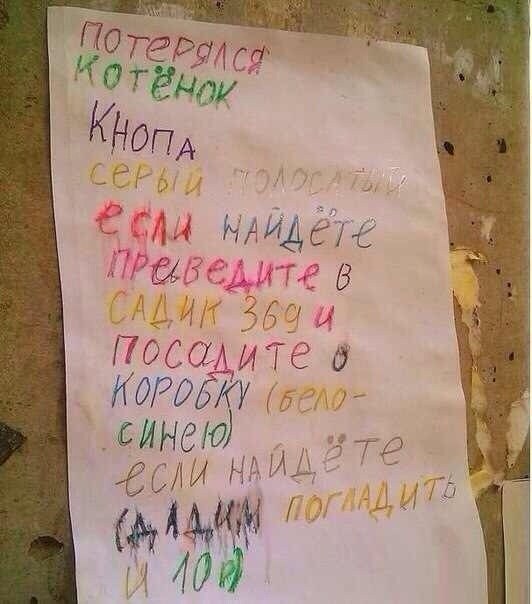 ПОТЕРЯЛСЯ
КОТЁНОК
КНОПА
СЕРЫЙ ПОЛОСАТЫЙ
ЕСЛИ НАЙДЁТЕ
ПРЕВЕДИТЕ В
САДИК 369 И
ПОСАДИТЕ О
КОРОБКУ (БЕЛО-
СИНЕЮ)
ЕСЛИ НАЙДЁТЕ
ДАДИМ ПОГЛАДИТЬ
И 10 р